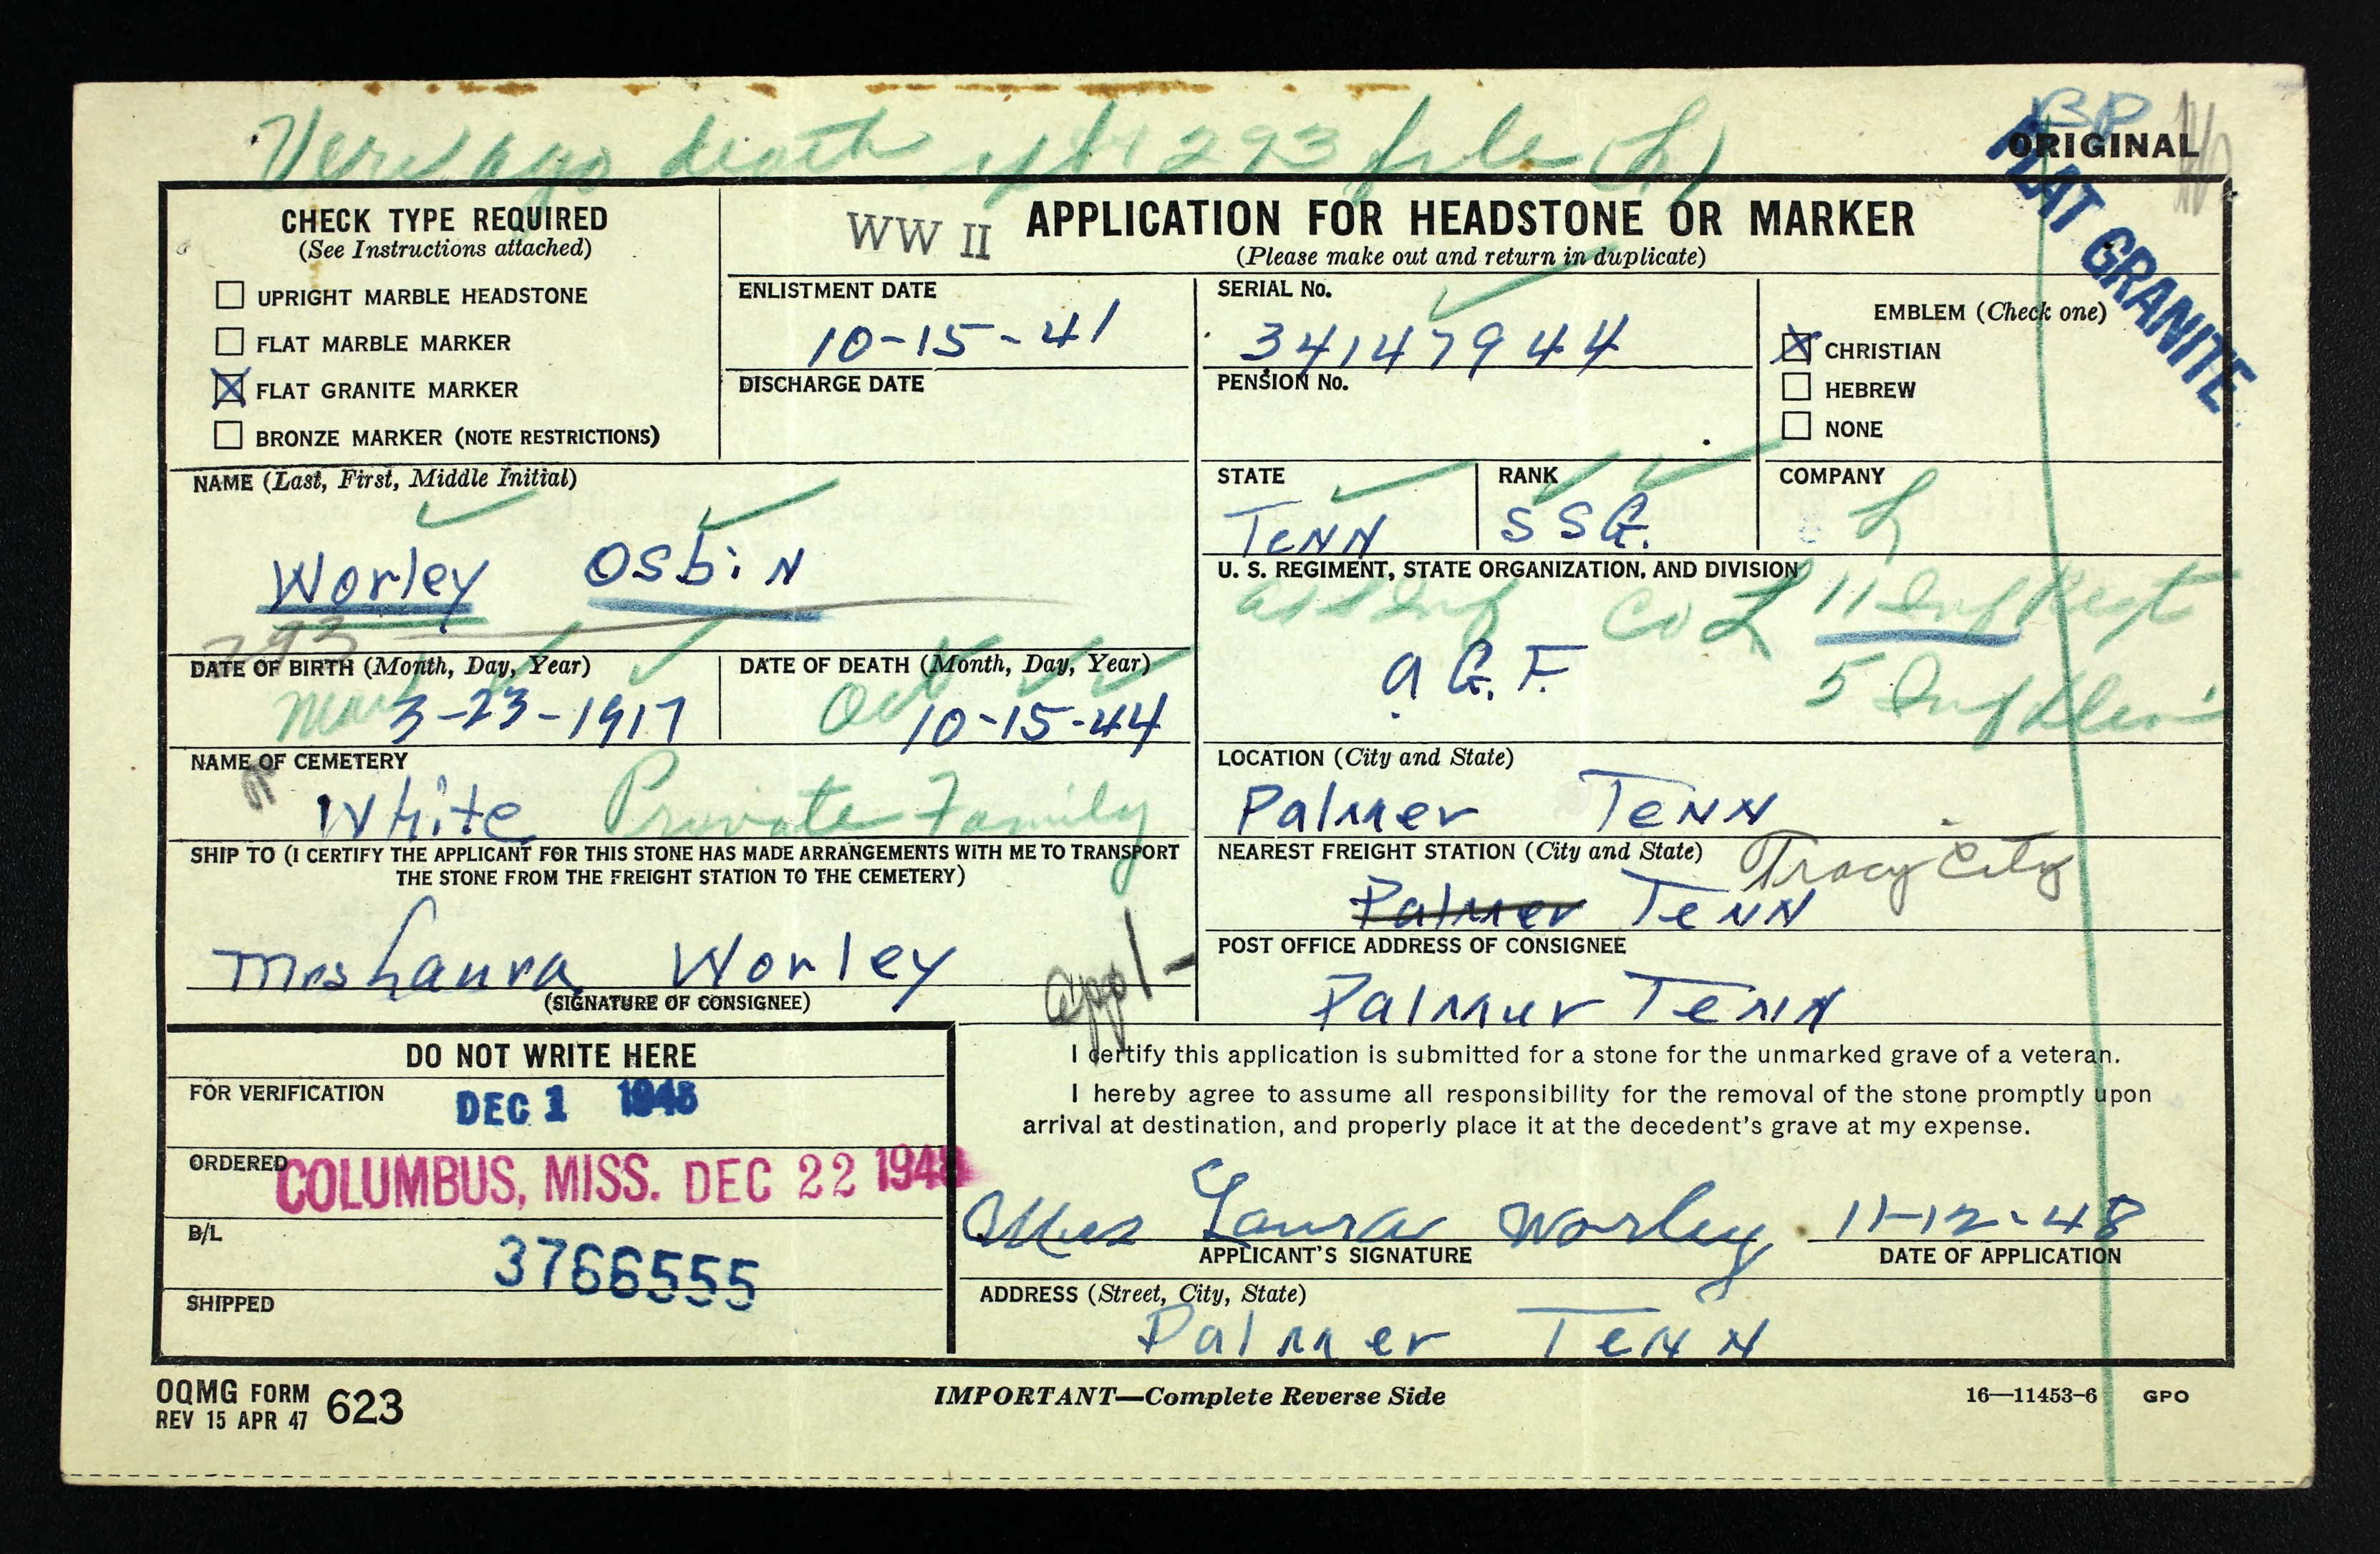 death 293 file (L)
BP
ORIGINAL
FLAT GRANITE
CHECK TYPE REQUIRED
(See Instructions attached)
UPRIGHT MARBLE HEADSTONE
FLAT MARBLE MARKER
X FLAT GRANITE MARKER
BRONZE MARKER (NOTE RESTRICTIONS)
WW II APPLICATION FOR HEADSTONE OR MARKER
(Please make out and return in duplicate)
ENLISTMENT DATE
10-15-41
DISCHARGE DATE
SERIAL No.
34147944
PENSION No.
EMBLEM (Check one)
X CHRISTIAN
HEBREW
NONE
NAME (Last, First, Middle Initial)
Worley Osbin
293
STATE
TENN
RANK
SSG.
COMPANY
L
U. S. REGIMENT, STATE ORGANIZATION, AND DIVISION
Inf Co L 11 Inf Regt
A.G.F. 5 Inf Div
DATE OF BIRTH (Month, Day, Year)
Mar 3-23-1917
DATE OF DEATH (Month, Day, Year)
Oct 10-15-44
NAME OF CEMETERY
White Private Family
LOCATION (City and State)
Palmer TENN
SHIP TO (I CERTIFY THE APPLICANT FOR THIS STONE HAS MADE ARRANGEMENTS WITH ME TO TRANSPORT
THE STONE FROM THE FREIGHT STATION TO THE CEMETERY)
Mrs Laura Worley
(SIGNATURE OF CONSIGNEE)
appl-
NEAREST FREIGHT STATION (City and State)
Tracy City
Palmer TENN
POST OFFICE ADDRESS OF CONSIGNEE
Palmur TENN
DO NOT WRITE HERE
FOR VERIFICATION
DEC 1 1948
ORDERED
COLUMBUS, MISS. DEC 22 1948
B/L
3766555
SHIPPED
I certify this application is submitted for a stone for the unmarked grave of a veteran.
I hereby agree to assume all responsibility for the removal of the stone promptly upon
arrival at destination, and properly place it at the decedent's grave at my expense.
Mrs Laura Worley 11-12-48
APPLICANT'S SIGNATURE DATE OF APPLICATION
ADDRESS (Street, City, State)
Palmer TENN
OQMG FORM 623
REV 15 APR 47
IMPORTANT—Complete Reverse Side
16—11453-6 GPO